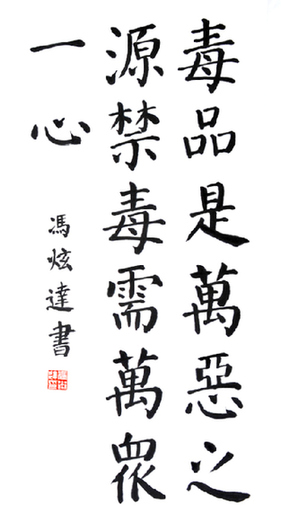 毒品是萬惡之
源禁毒需萬眾
一心
馮炫達書